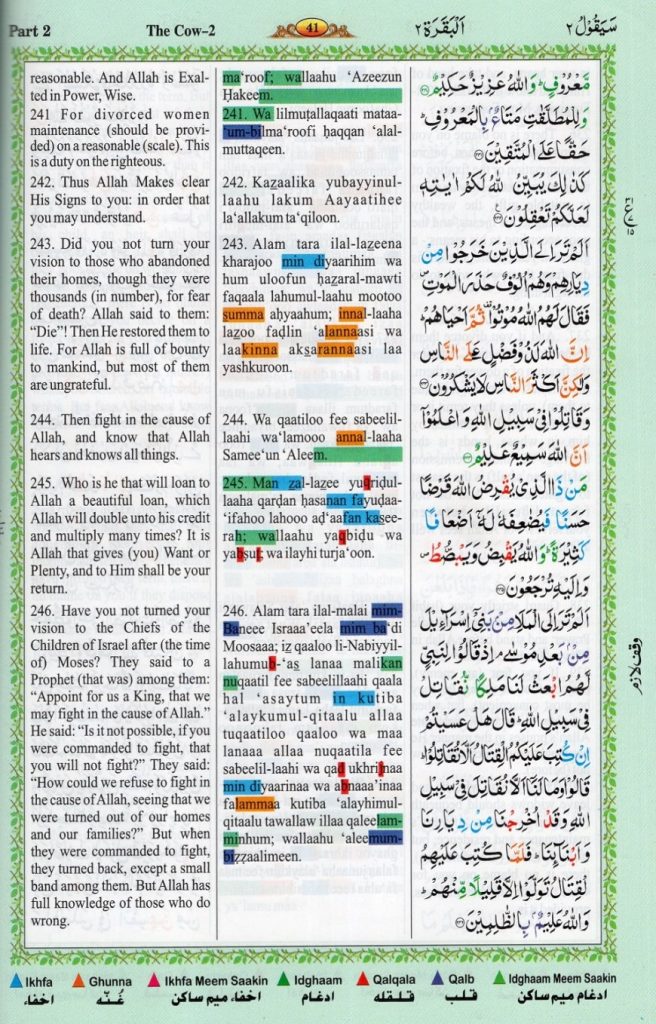 Part 2
The Cow-2
41
اَلْبَقَرَة ٢
سَيَقُوْلُ ٢
reasonable. And Allah is Exal-
ted in Power, Wise.
241 For divorced women
maintenance (should be provi-
ded) on a reasonable (scale). This
is a duty on the righteous.
242. Thus Allah Makes clear
His Signs to you: in order that
you may understand.
243. Did you not turn your
vision to those who abandoned
their homes, though they were
thousands (in number), for fear
of death? Allah said to them:
“Die”! Then He restored them to
life. For Allah is full of bounty
to mankind, but most of them
are ungrateful.
244. Then fight in the cause of
Allah, and know that Allah
hears and knows all things.
245. Who is he that will loan to
Allah a beautiful loan, which
Allah will double unto his credit
and multiply many times? It is
Allah that gives (you) Want or
Plenty, and to Him shall be your
return.
246. Have you not turned your
vision to the Chiefs of the
Children of Israel after (the time
of) Moses? They said to a
Prophet (that was) among them:
“Appoint for us a King, that we
may fight in the cause of Allah.”
He said: “Is it not possible, if you
were commanded to fight, that
you will not fight?” They said:
“How could we refuse to fight in
the cause of Allah, seeing that we
were turned out of our homes
and our families?” But when
they were commanded to fight,
they turned back, except a small
band among them. But Allah has
full knowledge of those who do
wrong.
ma‘roof; wallaahu ‘Azeezun
Ḥakeem.
241. Wa lilmuṭallaqaati mataa-
‘um-bilma‘roofi ḥaqqan ‘alal-
muttaqeen.
242. Kazaalika yubayyinul-
laahu lakum Aayaatihee
la‘allakum ta‘qiloon.
243. Alam tara ilal-lazeena
kharajoo min diyaarihim wa
hum uloofun ḥazaral-mawti
faqaala lahumul-laahu mootoo
summa aḥyaahum; innal-laaha
lazoo faḍlin ‘alannaasi wa
laakinna aksarannaasi laa
yashkuroon.
244. Wa qaatiloo fee sabeelil-
laahi wa‘lamooo annal-laaha
Samee‘un ‘Aleem.
245. Man zal-lazee yuqriḍul-
laaha qarḍan ḥasanan fayuḍaa-
‘ifahoo lahooo aḍ‘aafan kasee-
rah; wallaahu yaqbiḍu wa
yabsuṭ; wa ilayhi turja‘oon.
246. Alam tara ilal-malai mim-
Baneee Israaa’eela mim ba‘di
Moosaaa; iz qaaloo li-Nabiyyil-
lahumub-‘as lanaa malikan
nuqaatil fee sabeelillaahi qaala
hal ‘asaytum in kutiba
‘alaykumul-qitaalu allaa
tuqaatiloo qaaloo wa maa
lanaaa allaa nuqaatila fee
sabeelil-laahi wa qad ukhrijnaa
min diyaarinaa wa abnaaa’inaa
falammaa kutiba ‘alayhimul-
qitaalu tawallaw illaa qaleelam-
minhum; wallaahu ‘aleemum-
bizzaalimeen.
مَّعْرُوْفٍ ؕ وَاللّٰهُ عَزِيْزٌ حَكِيْمٌ
وَلِلْمُطَلَّقٰتِ مَتَاعٌۢ بِالْمَعْرُوْفِ ؕ
حَقًّا عَلَى الْمُتَّقِيْنَ
كَذٰلِكَ يُبَيِّنُ اللّٰهُ لَكُمْ اٰيٰتِهٖ
لَعَلَّكُمْ تَعْقِلُوْنَ
اَلَمْ تَرَ اِلَى الَّذِيْنَ خَرَجُوْا مِنْ
دِيَارِهِمْ وَهُمْ اُلُوْفٌ حَذَرَ الْمَوْتِ ۪
فَقَالَ لَهُمُ اللّٰهُ مُوْتُوْا ۫ ثُمَّ اَحْيَاهُمْ ؕ
اِنَّ اللّٰهَ لَذُوْ فَضْلٍ عَلَى النَّاسِ
وَلٰكِنَّ اَكْثَرَ النَّاسِ لَا يَشْكُرُوْنَ
وَقَاتِلُوْا فِيْ سَبِيْلِ اللّٰهِ وَاعْلَمُوْٓا
اَنَّ اللّٰهَ سَمِيْعٌ عَلِيْمٌ
مَنْ ذَا الَّذِيْ يُقْرِضُ اللّٰهَ قَرْضًا
حَسَنًا فَيُضٰعِفَهٗ لَهٗٓ اَضْعَافًا
كَثِيْرَةً ؕ وَاللّٰهُ يَقْبِضُ وَيَبْصُۜطُ ۪
وَاِلَيْهِ تُرْجَعُوْنَ
اَلَمْ تَرَ اِلَى الْمَلَاِ مِنْۢ بَنِيْٓ اِسْرَآءِيْلَ
مِنْۢ بَعْدِ مُوْسٰى ۘ اِذْ قَالُوْا لِنَبِيٍّ
لَّهُمُ ابْعَثْ لَنَا مَلِكًا نُّقَاتِلْ
فِيْ سَبِيْلِ اللّٰهِ ؕ قَالَ هَلْ عَسَيْتُمْ
اِنْ كُتِبَ عَلَيْكُمُ الْقِتَالُ اَلَّا تُقَاتِلُوْا ؕ
قَالُوْا وَمَا لَنَآ اَلَّا نُقَاتِلَ فِيْ سَبِيْلِ
اللّٰهِ وَقَدْ اُخْرِجْنَا مِنْ دِيَارِنَا
وَاَبْنَآئِنَا ؕ فَلَمَّا كُتِبَ عَلَيْهِمُ
الْقِتَالُ تَوَلَّوْا اِلَّا قَلِيْلًا مِّنْهُمْ ؕ
وَاللّٰهُ عَلِيْمٌۢ بِالظّٰلِمِيْنَ
وقف لازم
Ikhfa
Ghunna
Ikhfa Meem Saakin
Idghaam
Qalqala
Qalb
Idghaam Meem Saakin
اخفاء
غُنّه
اخفاء میم ساکن
ادغام
قلقله
قلب
ادغام میم ساکن